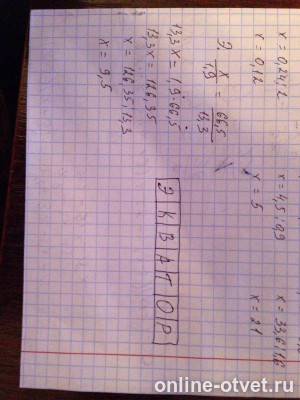 x = 0,24:2
x = 4,5:0,9
x = 33,6:1,6
x = 0,12
x = 5
x = 21
9. x/1,9 = 66,5/13,3
13,3x = 1,9·66,5
13,3x = 126,35
x = 126,35:13,3
x = 9,5
ЭКВАТОР
online-otvet.ru